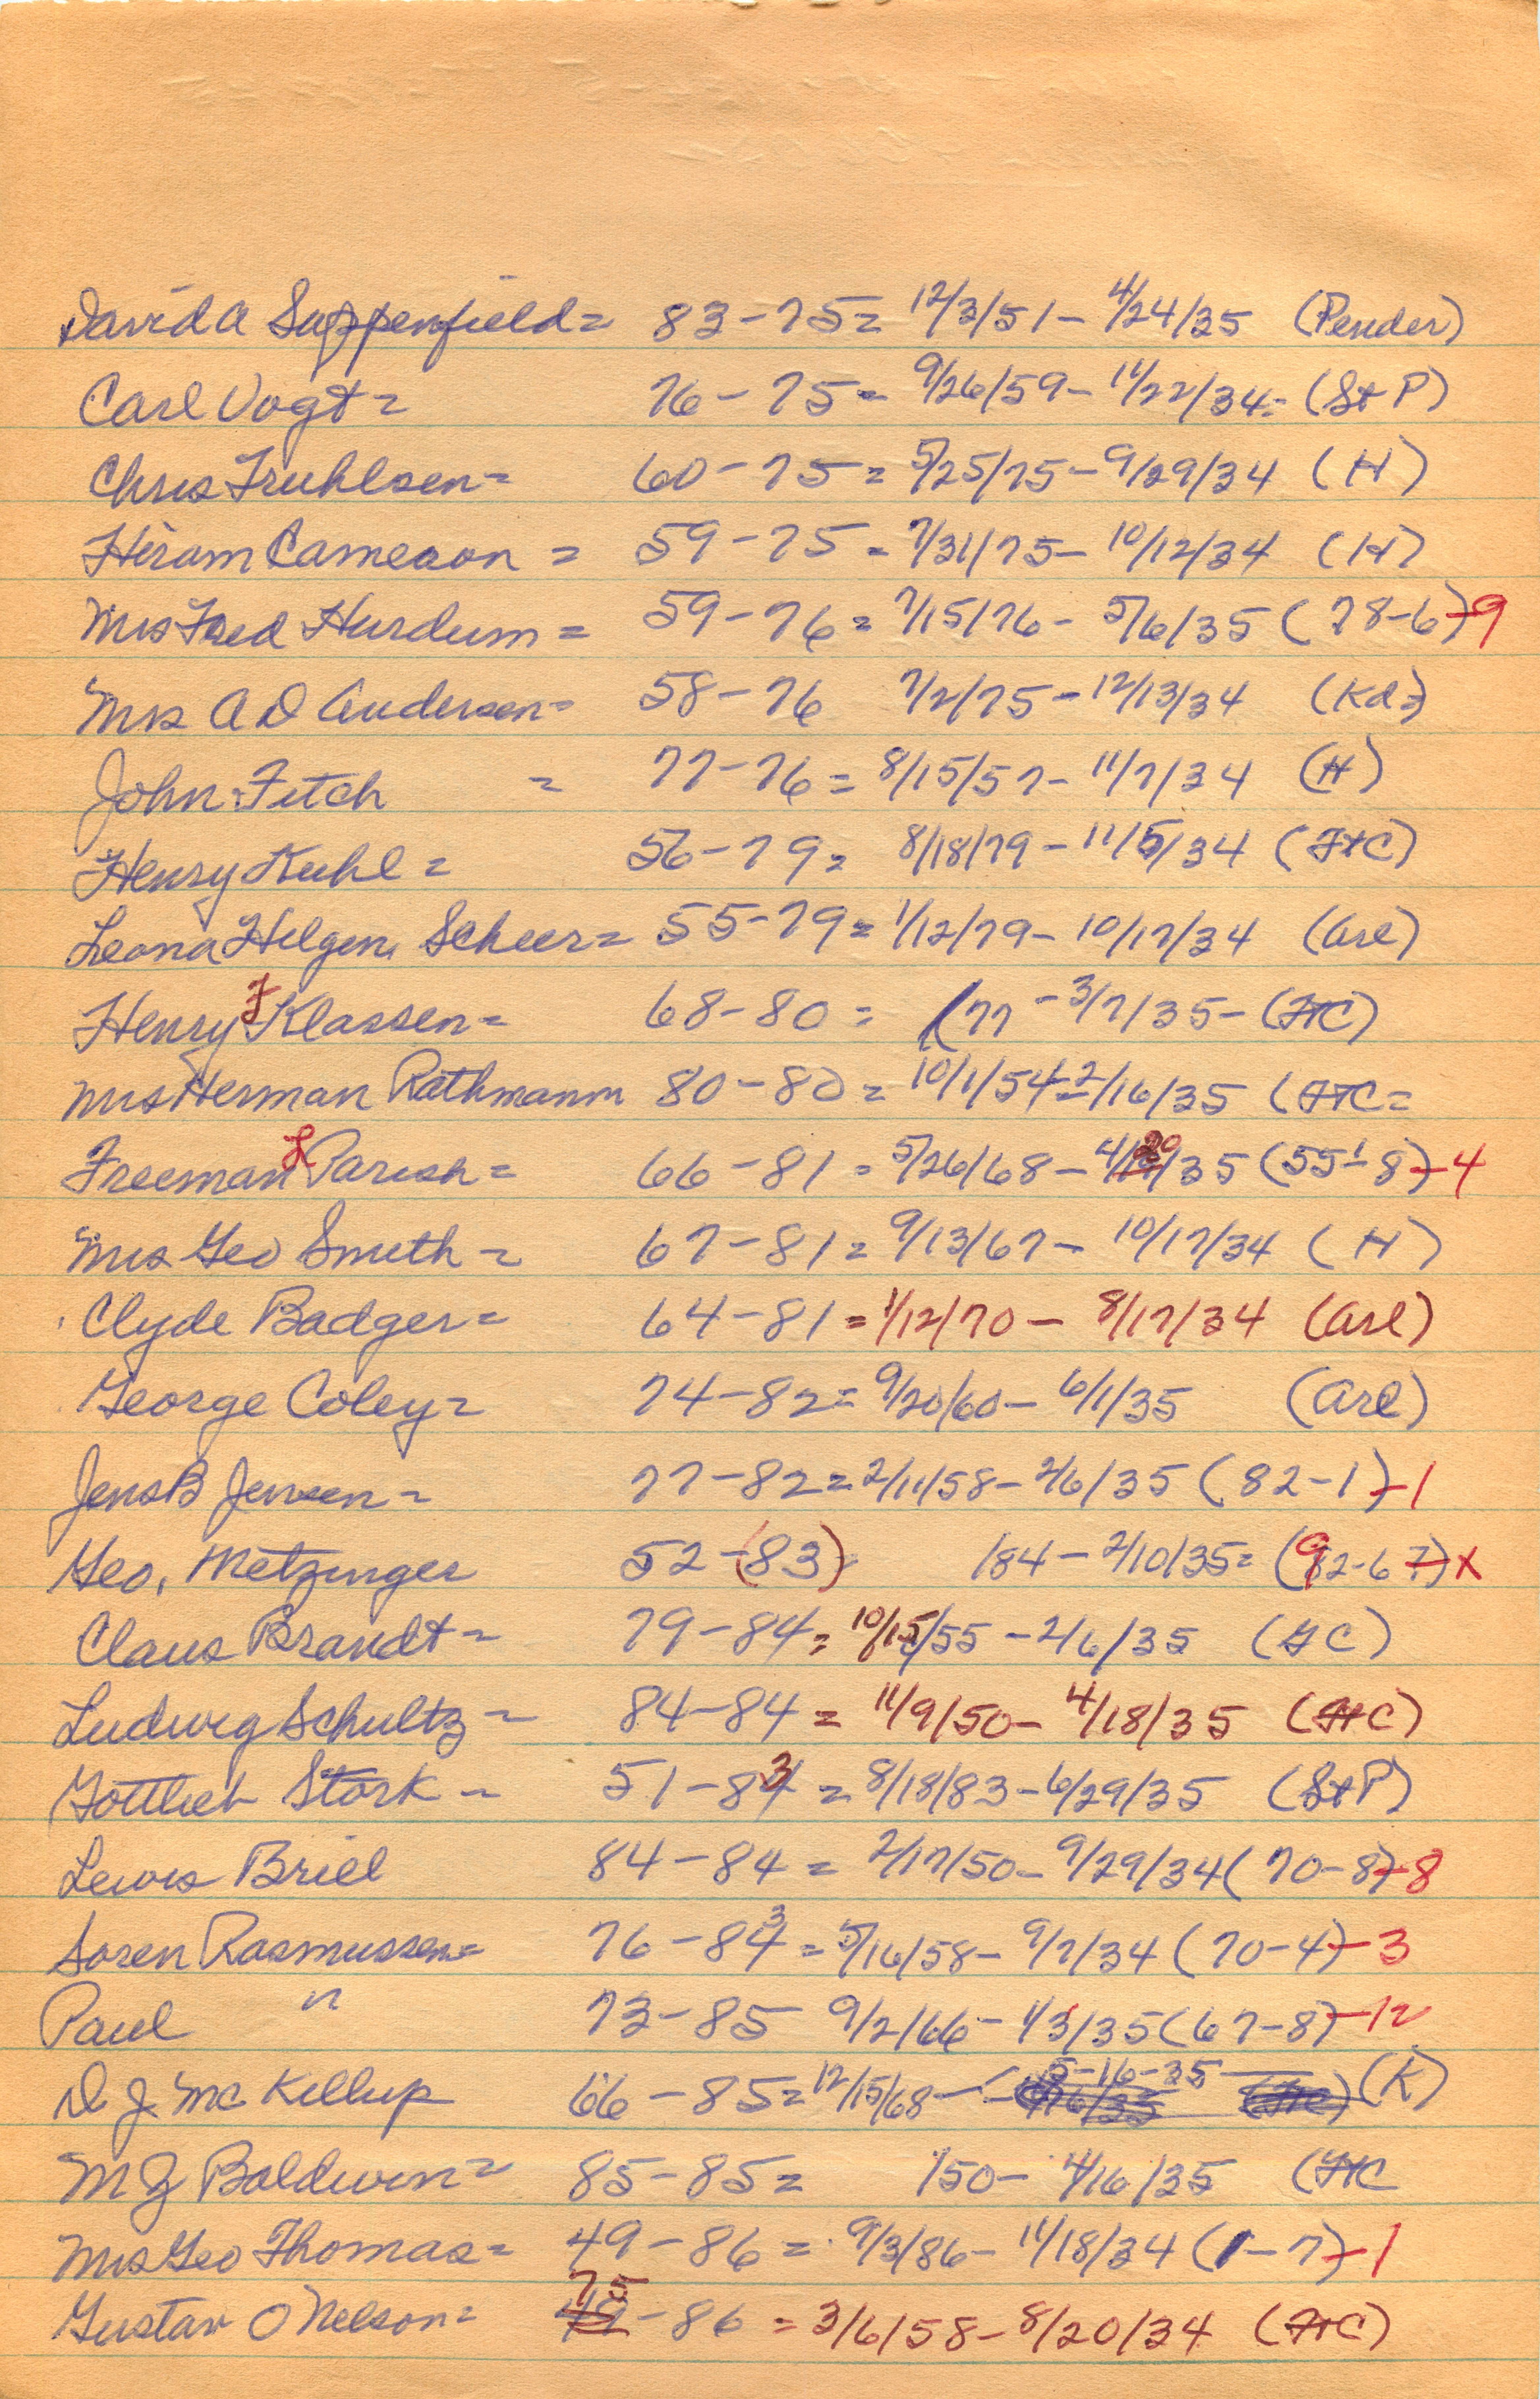 David A Suppenfield = 83-75 = 12/3/51 - 4/24/35 (Pender)
Carl Vogt = 76-75 = 9/26/59 - 11/22/34 = (St P)
Chris Fruhlsen = 60-75 = 5/25/75 - 9/29/34 (H)
Hiram Cameron = 59-75 = 7/31/75 - 10/12/34 (H)
Mrs Fred Hurdum = 59-76 = 7/15/76 - 5/6/35 (78-6)-9
Mrs A D Andersen = 58-76 7/2/75 - 12/13/34 (Kd=)
John Fitch = 77-76 = 8/15/57 - 11/7/34 (H)
Henry Kuhl = 56-79 = 8/18/79 - 11/5/34 (FtC)
Leona Hilgen Scheer = 55-79 = 1/12/79 - 10/17/34 (Arl)
Henry F Klassen = 68-80 = (77 - 3/7/35 - (FtC)
Mrs Herman Rathmann 80-80 = 10/1/54 = 2/16/35 (FtC =
Freeman L Parish = 66-81 = 5/26/68 - 4/20/35 (55-8)-4
Mrs Geo Smith = 67-81 = 9/13/67 - 10/17/34 (H)
Clyde Badger = 64-81 = 1/12/70 - 8/17/34 (Arl)
George Coley = 74-82 = 9/20/60 - 6/1/35 (Arl)
Jens B Jensen = 77-82 = 2/11/58 - 2/6/35 (82-1)-1
Geo. Metzinger 52-(83) /84 - 2/10/35 = (92-67)-x
Claus Brandt = 79-84 = 10/15/55 - 2/6/35 (FC)
Ludwig Schultz - 84-84 = 11/9/50 - 4/18/35 (FtC)
Gottlieb Stork - 51-83 = 8/18/83 - 6/29/35 (St P)
Lewis Briel 84-84 = 2/17/50 - 9/29/34 (70-8)-8
Soren Rasmussen = 76-84 3 = 5/16/58 - 9/7/34 (70-4)-3
Paul " 73-85 9/2/66 - 1/3/35 (67-8)-12
D J McKillip 66-85 = 12/15/68 - 5-16-35 (K)
M J Baldwin = 85-85 = /50 - 4/16/35 (FtC
Mrs Geo Thomas = 49-86 = 9/3/86 - 11/18/34 (1-7)-1
Gustav O Nelson = 75-86 = 3/6/58 - 8/20/34 (FtC)